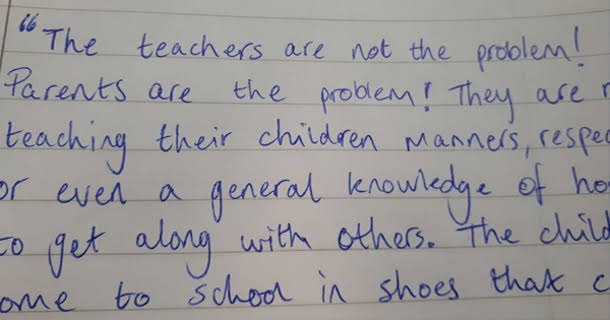 “The teachers are not the problem!
Parents are the problem! They are
teaching their children manners,
or even a general knowledge of
to get along with others. The
ome to school in shoes that